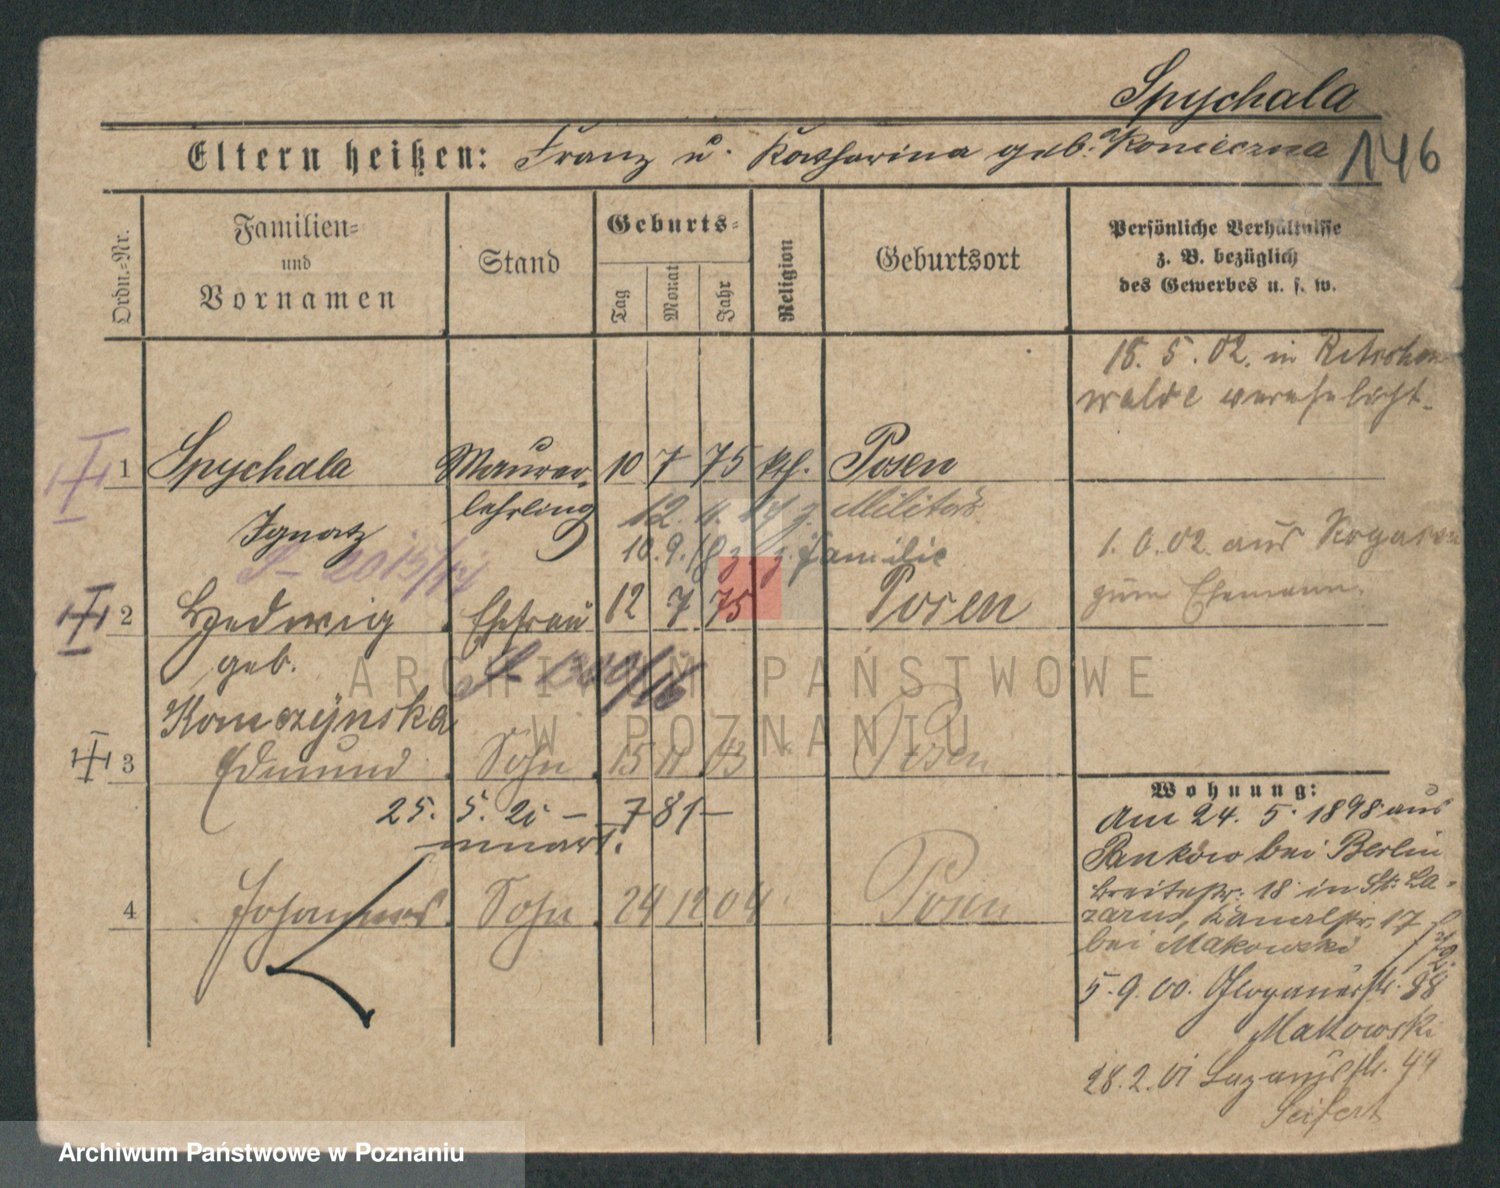 Spychala
Eltern heißen: Franz u. Katharina geb. Konieczna 146
Ordn.-Nr.
Familien-
und
Vornamen
Stand
Geburts-
Tag
Monat
Jahr
Religion
Geburtsort
Persönliche Verhältnisse
z. B. bezüglich
des Gewerbes u. s. w.
18. 5. 02. in
walde verehelicht.
1 Spychala Maurer- 10 7 75 kth. Posen
lehrling
Ignatz
z. Militär
10. 9. 18 z. Familie
1. 6. 02. aus Rogasen
zum Ehemann.
2 Hedwig Ehefrau 12 7 75 Posen
geb.
3 Edmund Sohn 15 11 03 Posen
25. 5. 21 – 781 –
4 Johannes Sohn 24 12 04 Posen
Wohnung:
Am 24. 5. 1898 aus
Pankow bei Berlin
Breitestr. 18 in St. La-
zarus, Kanalstr. 17
bei Makowski
5. 9. 00. Glogauerstr. 88
Makowski
28. 2. 01 Lazarusstr.
Seifert
ARCHIWUM PAŃSTWOWE
W POZNANIU
Archiwum Państwowe w Poznaniu